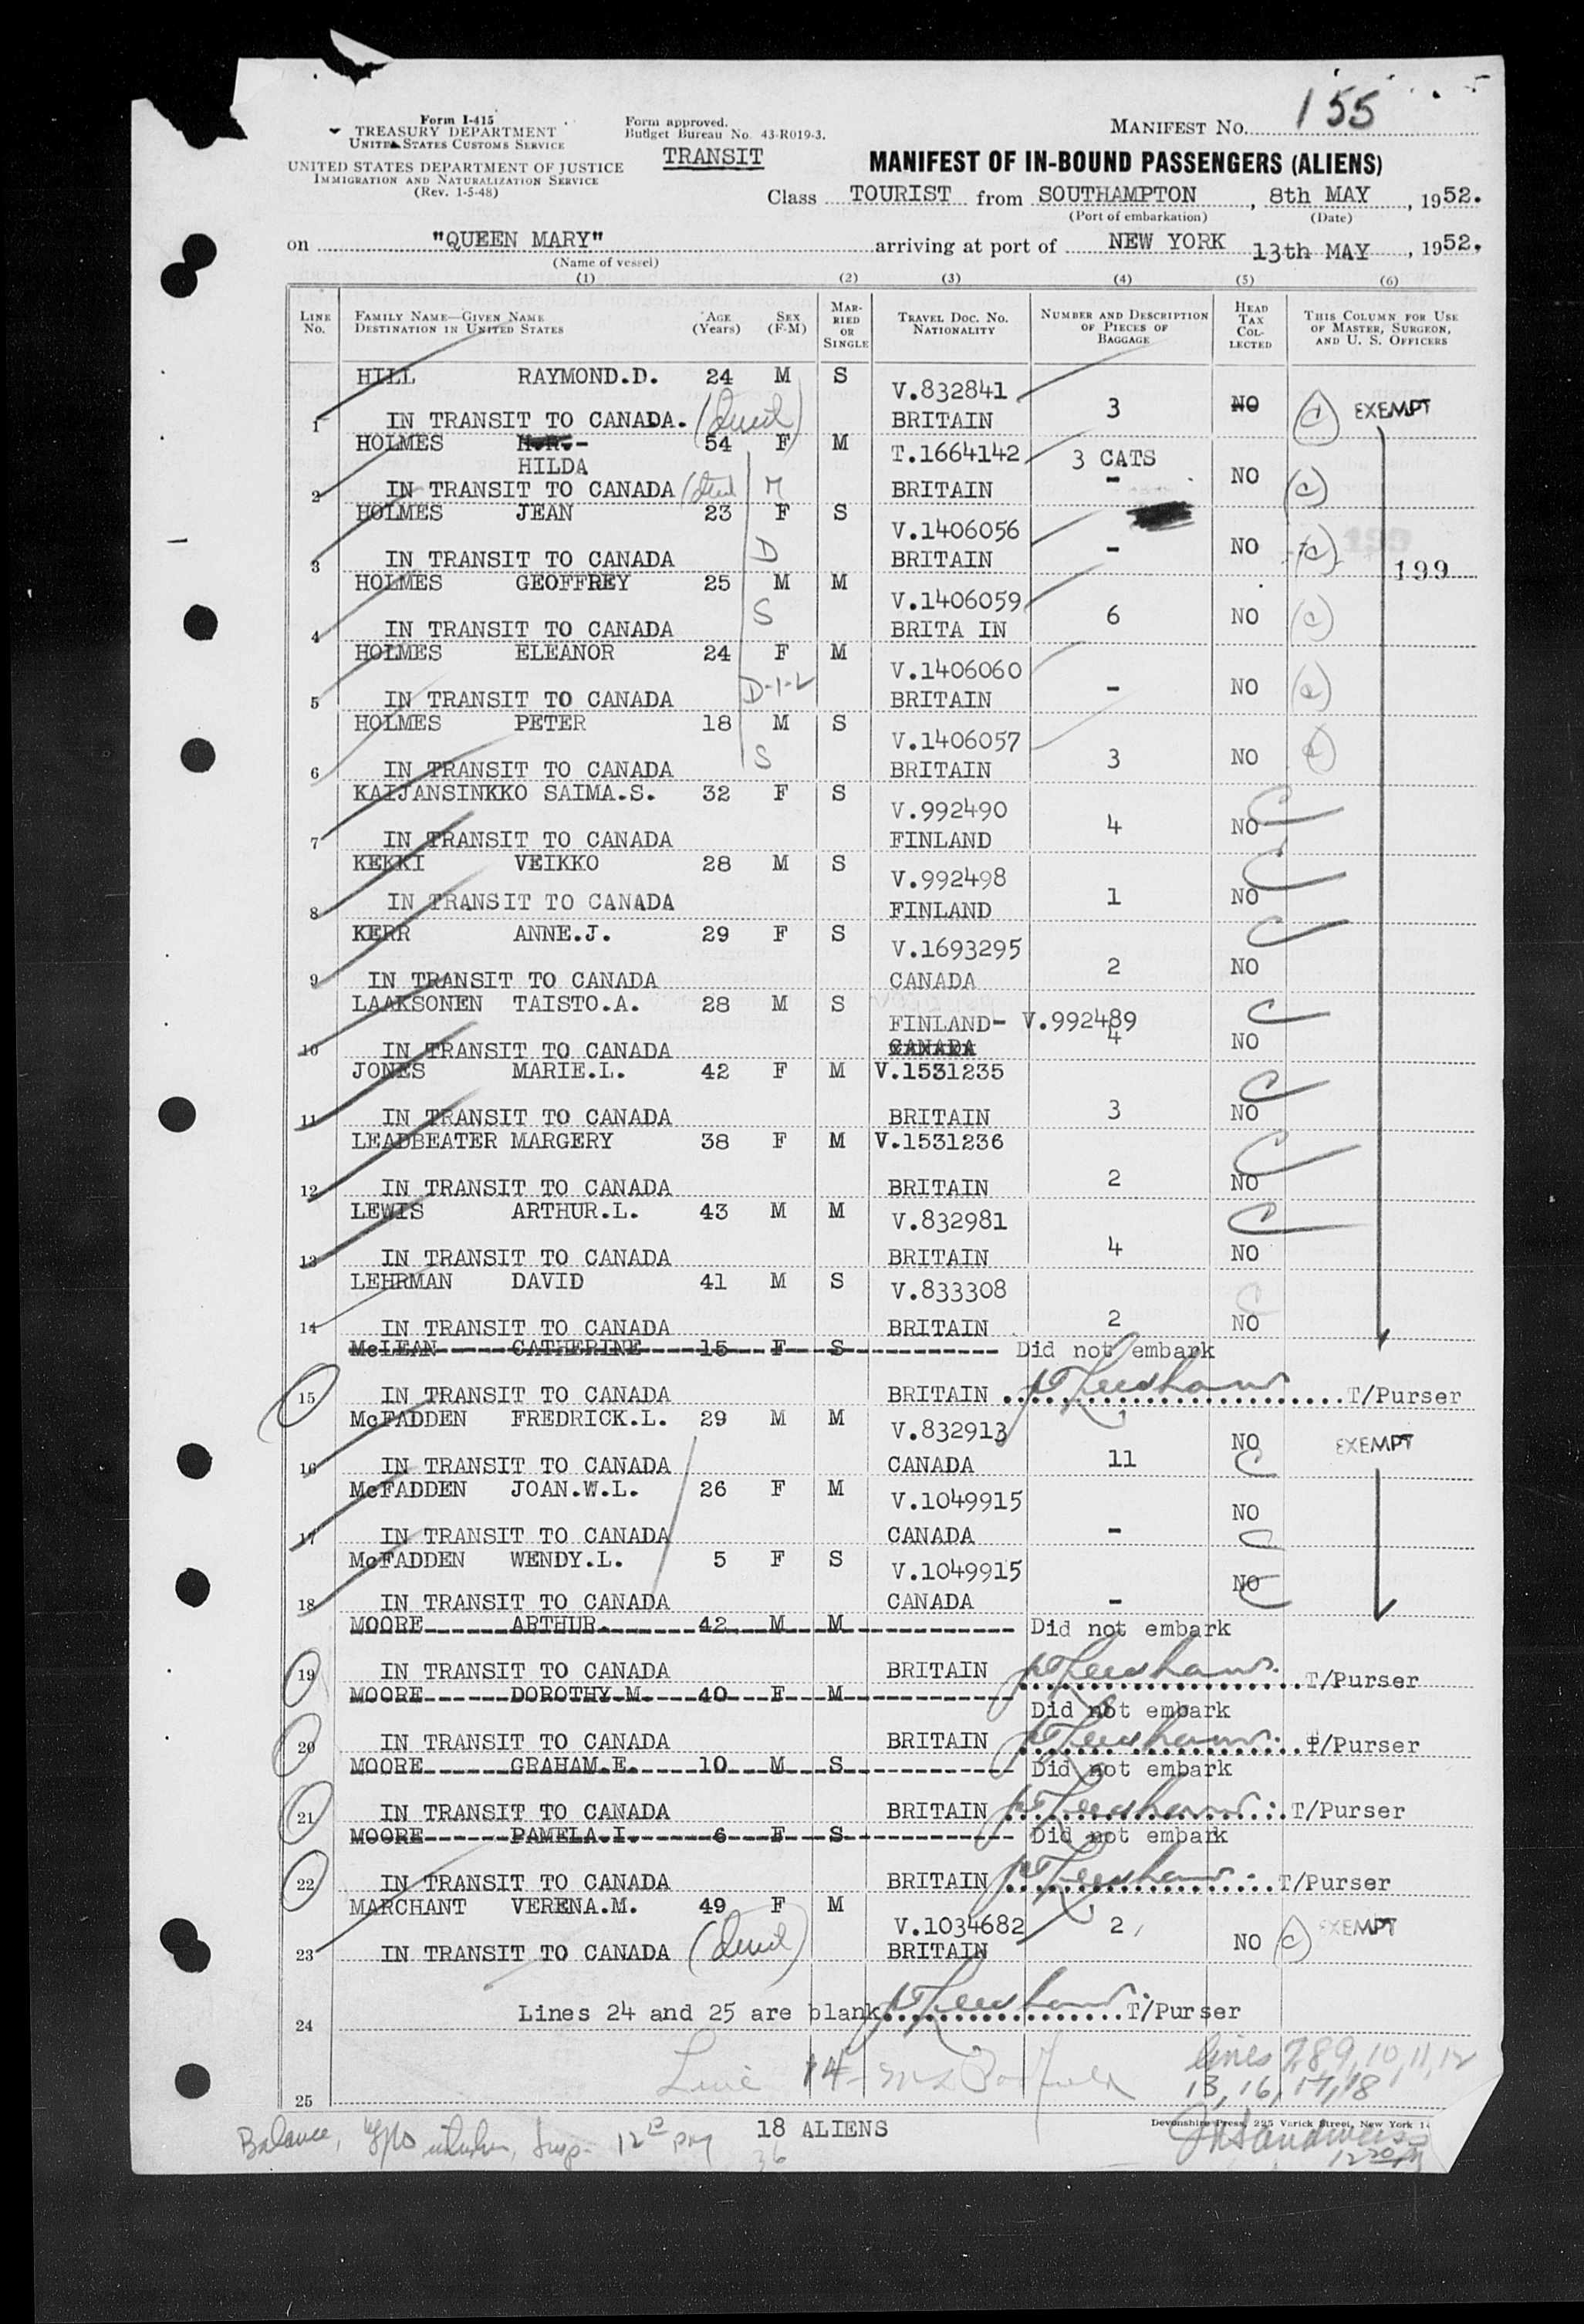 155
Form I-415
TREASURY DEPARTMENT
UNITED STATES CUSTOMS SERVICE
UNITED STATES DEPARTMENT OF JUSTICE
IMMIGRATION AND NATURALIZATION SERVICE
(Rev. 1-5-48)
Form approved.
Budget Bureau No. 43-R019-3.
TRANSIT
MANIFEST No.
MANIFEST OF IN-BOUND PASSENGERS (ALIENS)
Class TOURIST from SOUTHAMPTON, 8th MAY, 1952.
(Port of embarkation) (Date)
on "QUEEN MARY" arriving at port of NEW YORK 13th MAY, 1952.
(Name of vessel)
(1) (2) (3) (4) (5) (6)
LINE No. FAMILY NAME—GIVEN NAME DESTINATION IN UNITED STATES AGE (Years) SEX (F-M) MARRIED OR SINGLE TRAVEL DOC. NO. NATIONALITY NUMBER AND DESCRIPTION OF PIECES OF BAGGAGE HEAD TAX COLLECTED THIS COLUMN FOR USE OF MASTER, SURGEON, AND U. S. OFFICERS
HILL RAYMOND.D. 24 M S V.832841
1 IN TRANSIT TO CANADA. BRITAIN 3 NO C EXEMPT
HOLMES H.R.- 54 F M T.1664142 3 CATS
HILDA
2 IN TRANSIT TO CANADA M BRITAIN - NO C
HOLMES JEAN 23 F S V.1406056
3 IN TRANSIT TO CANADA D BRITAIN - NO C 199
HOLMES GEOFFREY 25 M M V.1406059
4 IN TRANSIT TO CANADA S BRITA IN 6 NO C
HOLMES ELEANOR 24 F M V.1406060
5 IN TRANSIT TO CANADA D-I-L BRITAIN - NO C
HOLMES PETER 18 M S V.1406057
6 IN TRANSIT TO CANADA S BRITAIN 3 NO C
KAIJANSINKKO SAIMA.S. 32 F S V.992490
7 IN TRANSIT TO CANADA FINLAND 4 NO C
KEKKI VEIKKO 28 M S V.992498
8 IN TRANSIT TO CANADA FINLAND 1 NO C
KERR ANNE.J. 29 F S V.1693295
9 IN TRANSIT TO CANADA CANADA 2 NO C
LAAKSONEN TAISTO.A. 28 M S FINLAND- V.992489
10 IN TRANSIT TO CANADA CANADA 4 NO C
JONES MARIE.L. 42 F M V.1531235
11 IN TRANSIT TO CANADA BRITAIN 3 NO C
LEADBEATER MARGERY 38 F M V.1531236
12 IN TRANSIT TO CANADA BRITAIN 2 NO C
LEWIS ARTHUR.L. 43 M M V.832981
13 IN TRANSIT TO CANADA BRITAIN 4 NO C
LEHRMAN DAVID 41 M S V.833308
14 IN TRANSIT TO CANADA BRITAIN 2 NO
McLEAN CATHERINE 15 F S Did not embark
15 IN TRANSIT TO CANADA BRITAIN T/Purser
McFADDEN FREDRICK.L. 29 M M V.832913
16 IN TRANSIT TO CANADA CANADA 11 NO C EXEMPT
McFADDEN JOAN.W.L. 26 F M V.1049915
17 IN TRANSIT TO CANADA CANADA - NO C
McFADDEN WENDY.L. 5 F S V.1049915
18 IN TRANSIT TO CANADA CANADA - NO C
MOORE ARTHUR. 42 M M Did not embark
19 IN TRANSIT TO CANADA BRITAIN T/Purser
MOORE DOROTHY.M. 40 F M Did not embark
20 IN TRANSIT TO CANADA BRITAIN T/Purser
MOORE GRAHAM.E. 10 M S Did not embark
21 IN TRANSIT TO CANADA BRITAIN T/Purser
MOORE PAMELA.I. 6 F S Did not embark
22 IN TRANSIT TO CANADA BRITAIN T/Purser
MARCHANT VERENA.M. 49 F M V.1034682 2 EXEMPT
23 IN TRANSIT TO CANADA BRITAIN NO C
24 Lines 24 and 25 are blank T/Purser
Line 14 lines 7,8,9,10,11,12
25 13,16,17,18
Devonshire Press, 225 Varick Street, New York 14
Balance, 12 PM 18 ALIENS
36